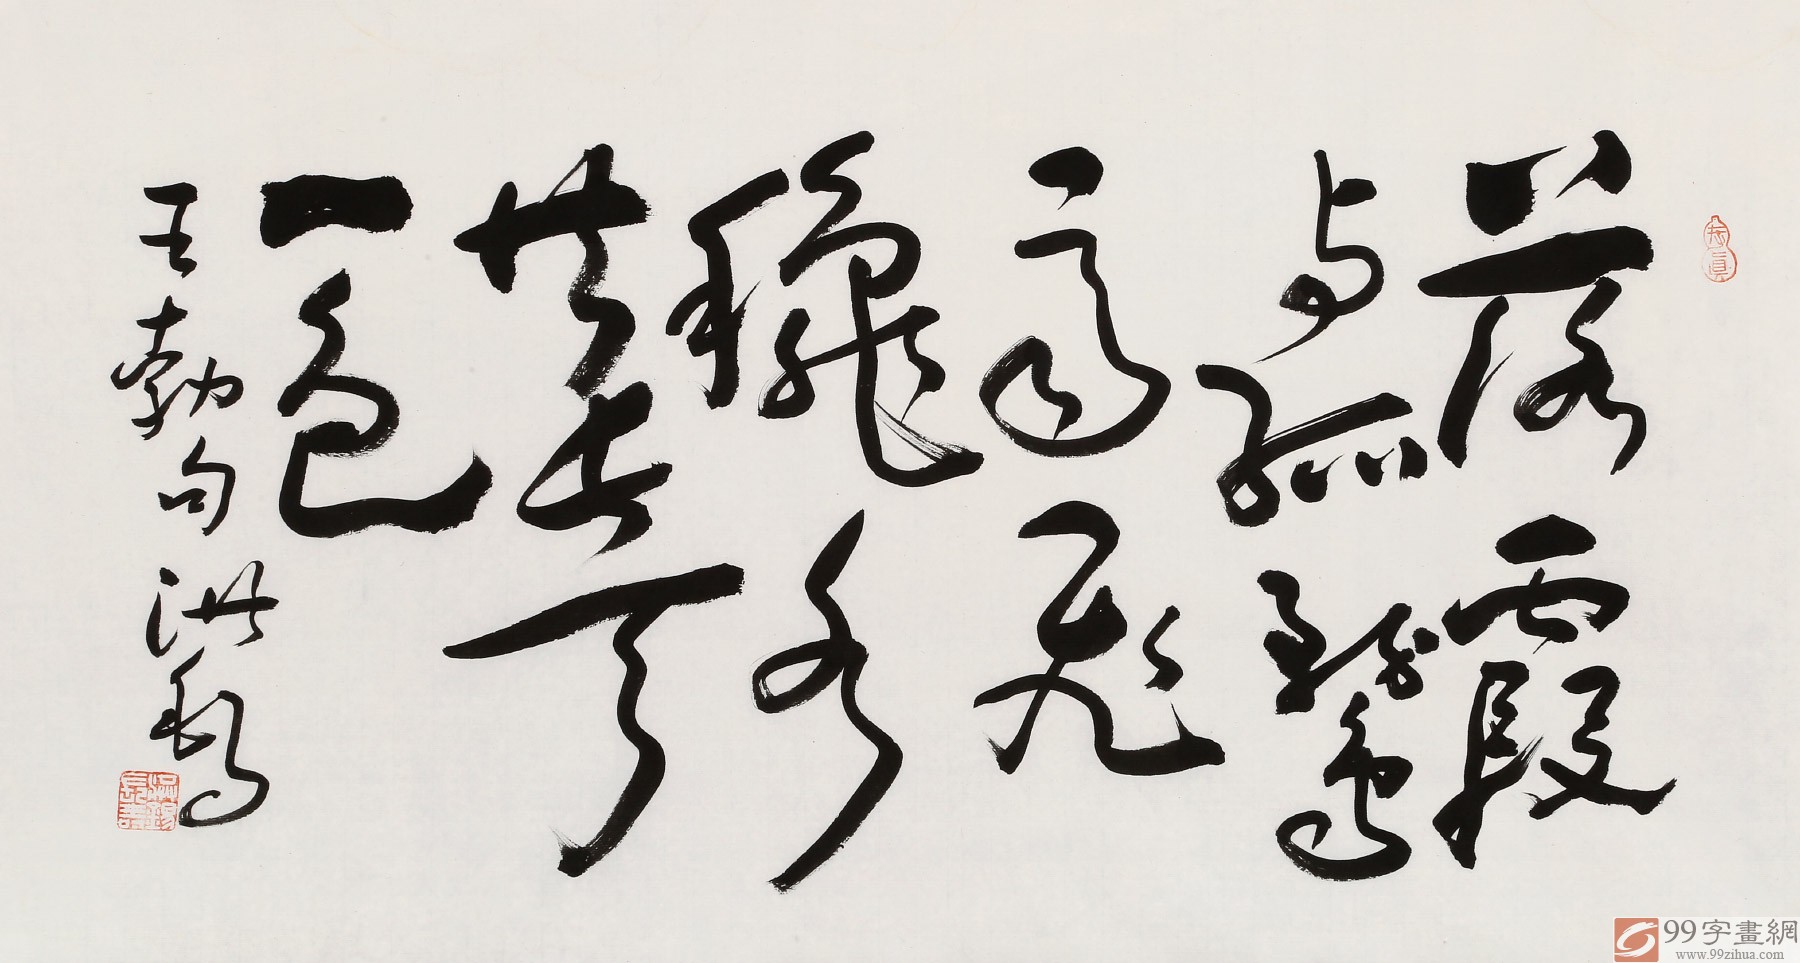 落霞
与孤鹜
齐飛
龝水
共長天
一色
王勃句 洪
99字畫網
www.99zihua.com